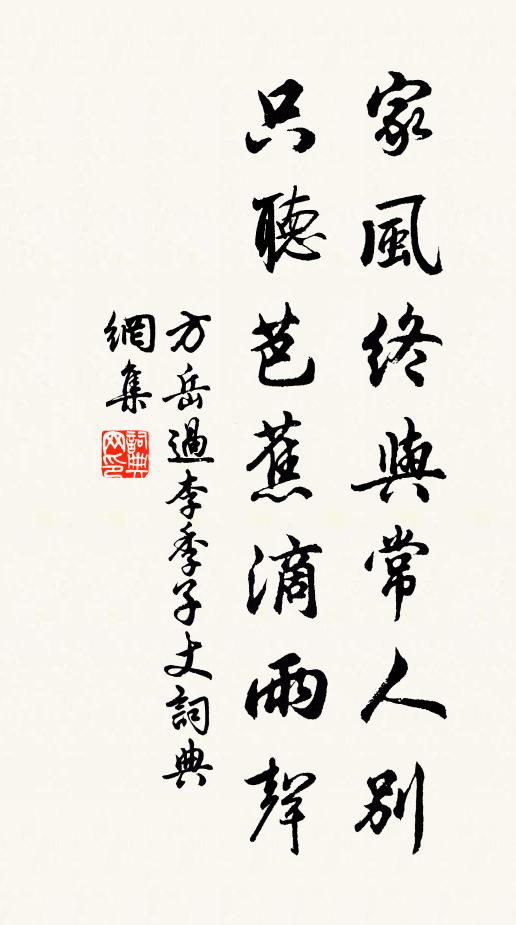 家風終與常人別
只聽芭蕉滴雨聲
方岳過李季子丈詞典
網集
詞典
网印